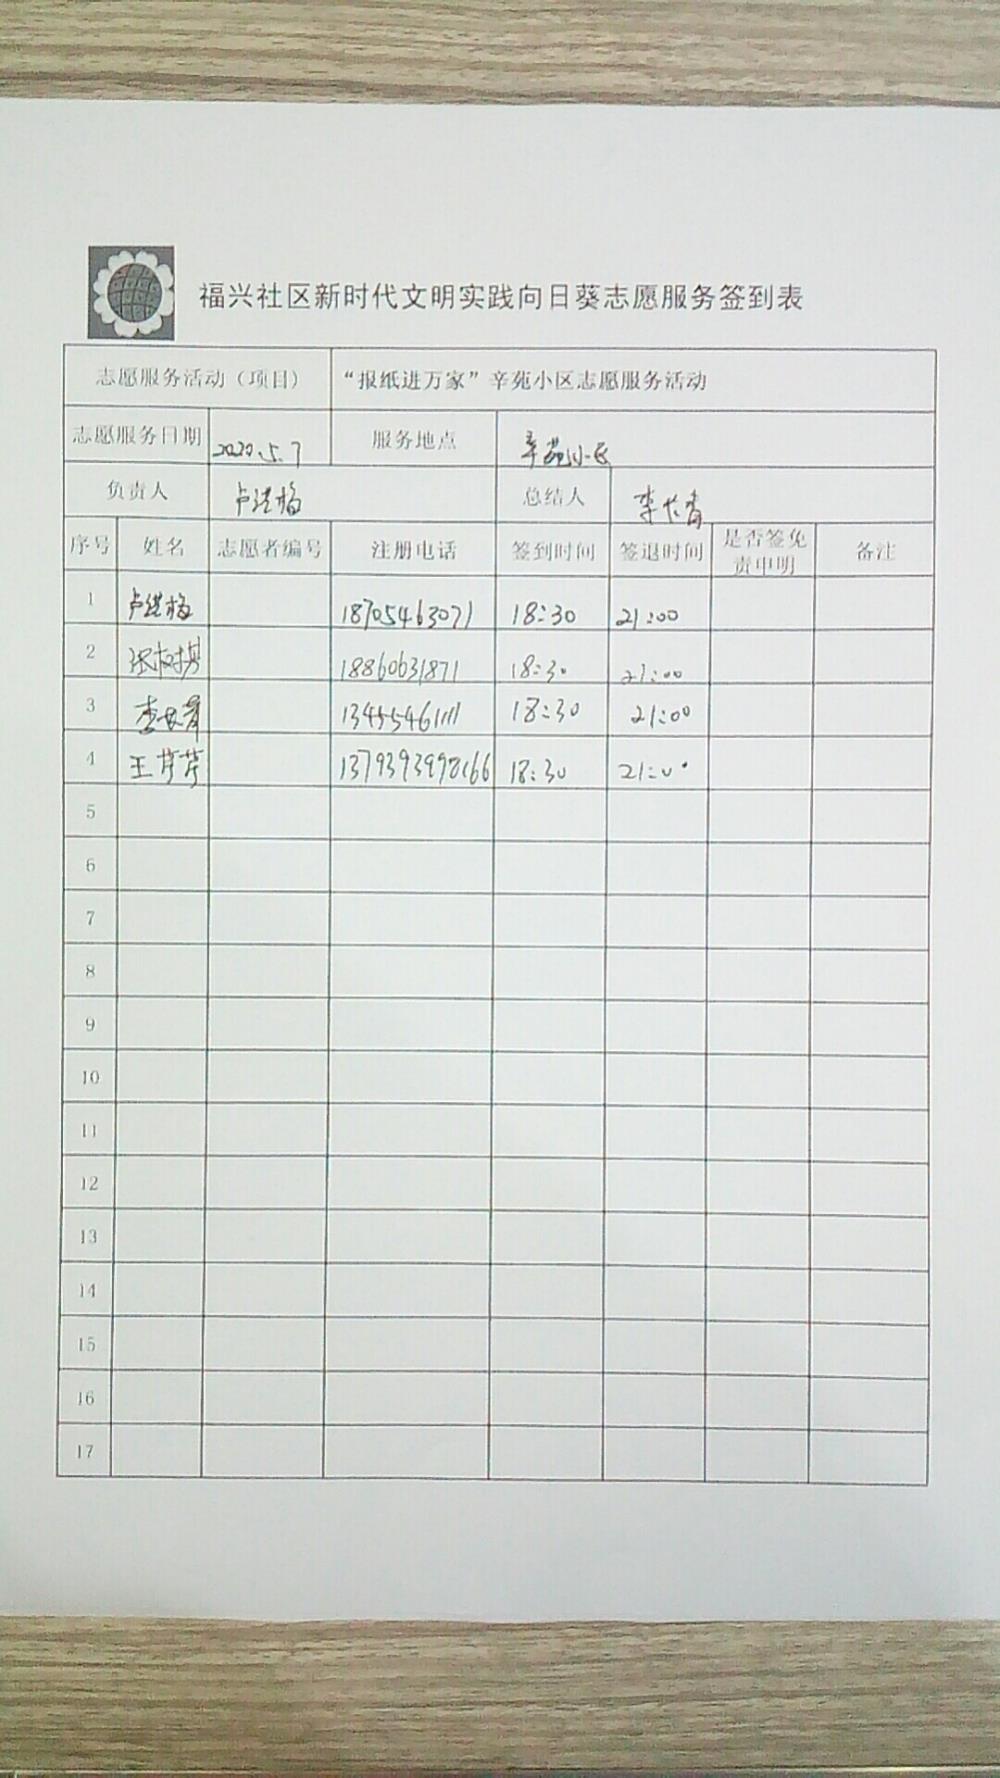 福兴社区新时代文明实践向日葵志愿服务签到表
志愿服务活动（项目） “报纸进万家”辛苑小区志愿服务活动
志愿服务日期 2020.5.7 服务地点 辛苑小区
负责人 总结人 李长青
序号 姓名 志愿者编号 注册电话 签到时间 签退时间 是否签免责申明 备注
1 18705463071 18:30 21:00
2 18860631871 18:30 21:00
3 13455461111 18:30 21:00
4 王芹芹 18:30 21:00
5
6
7
8
9
10
11
12
13
14
15
16
17